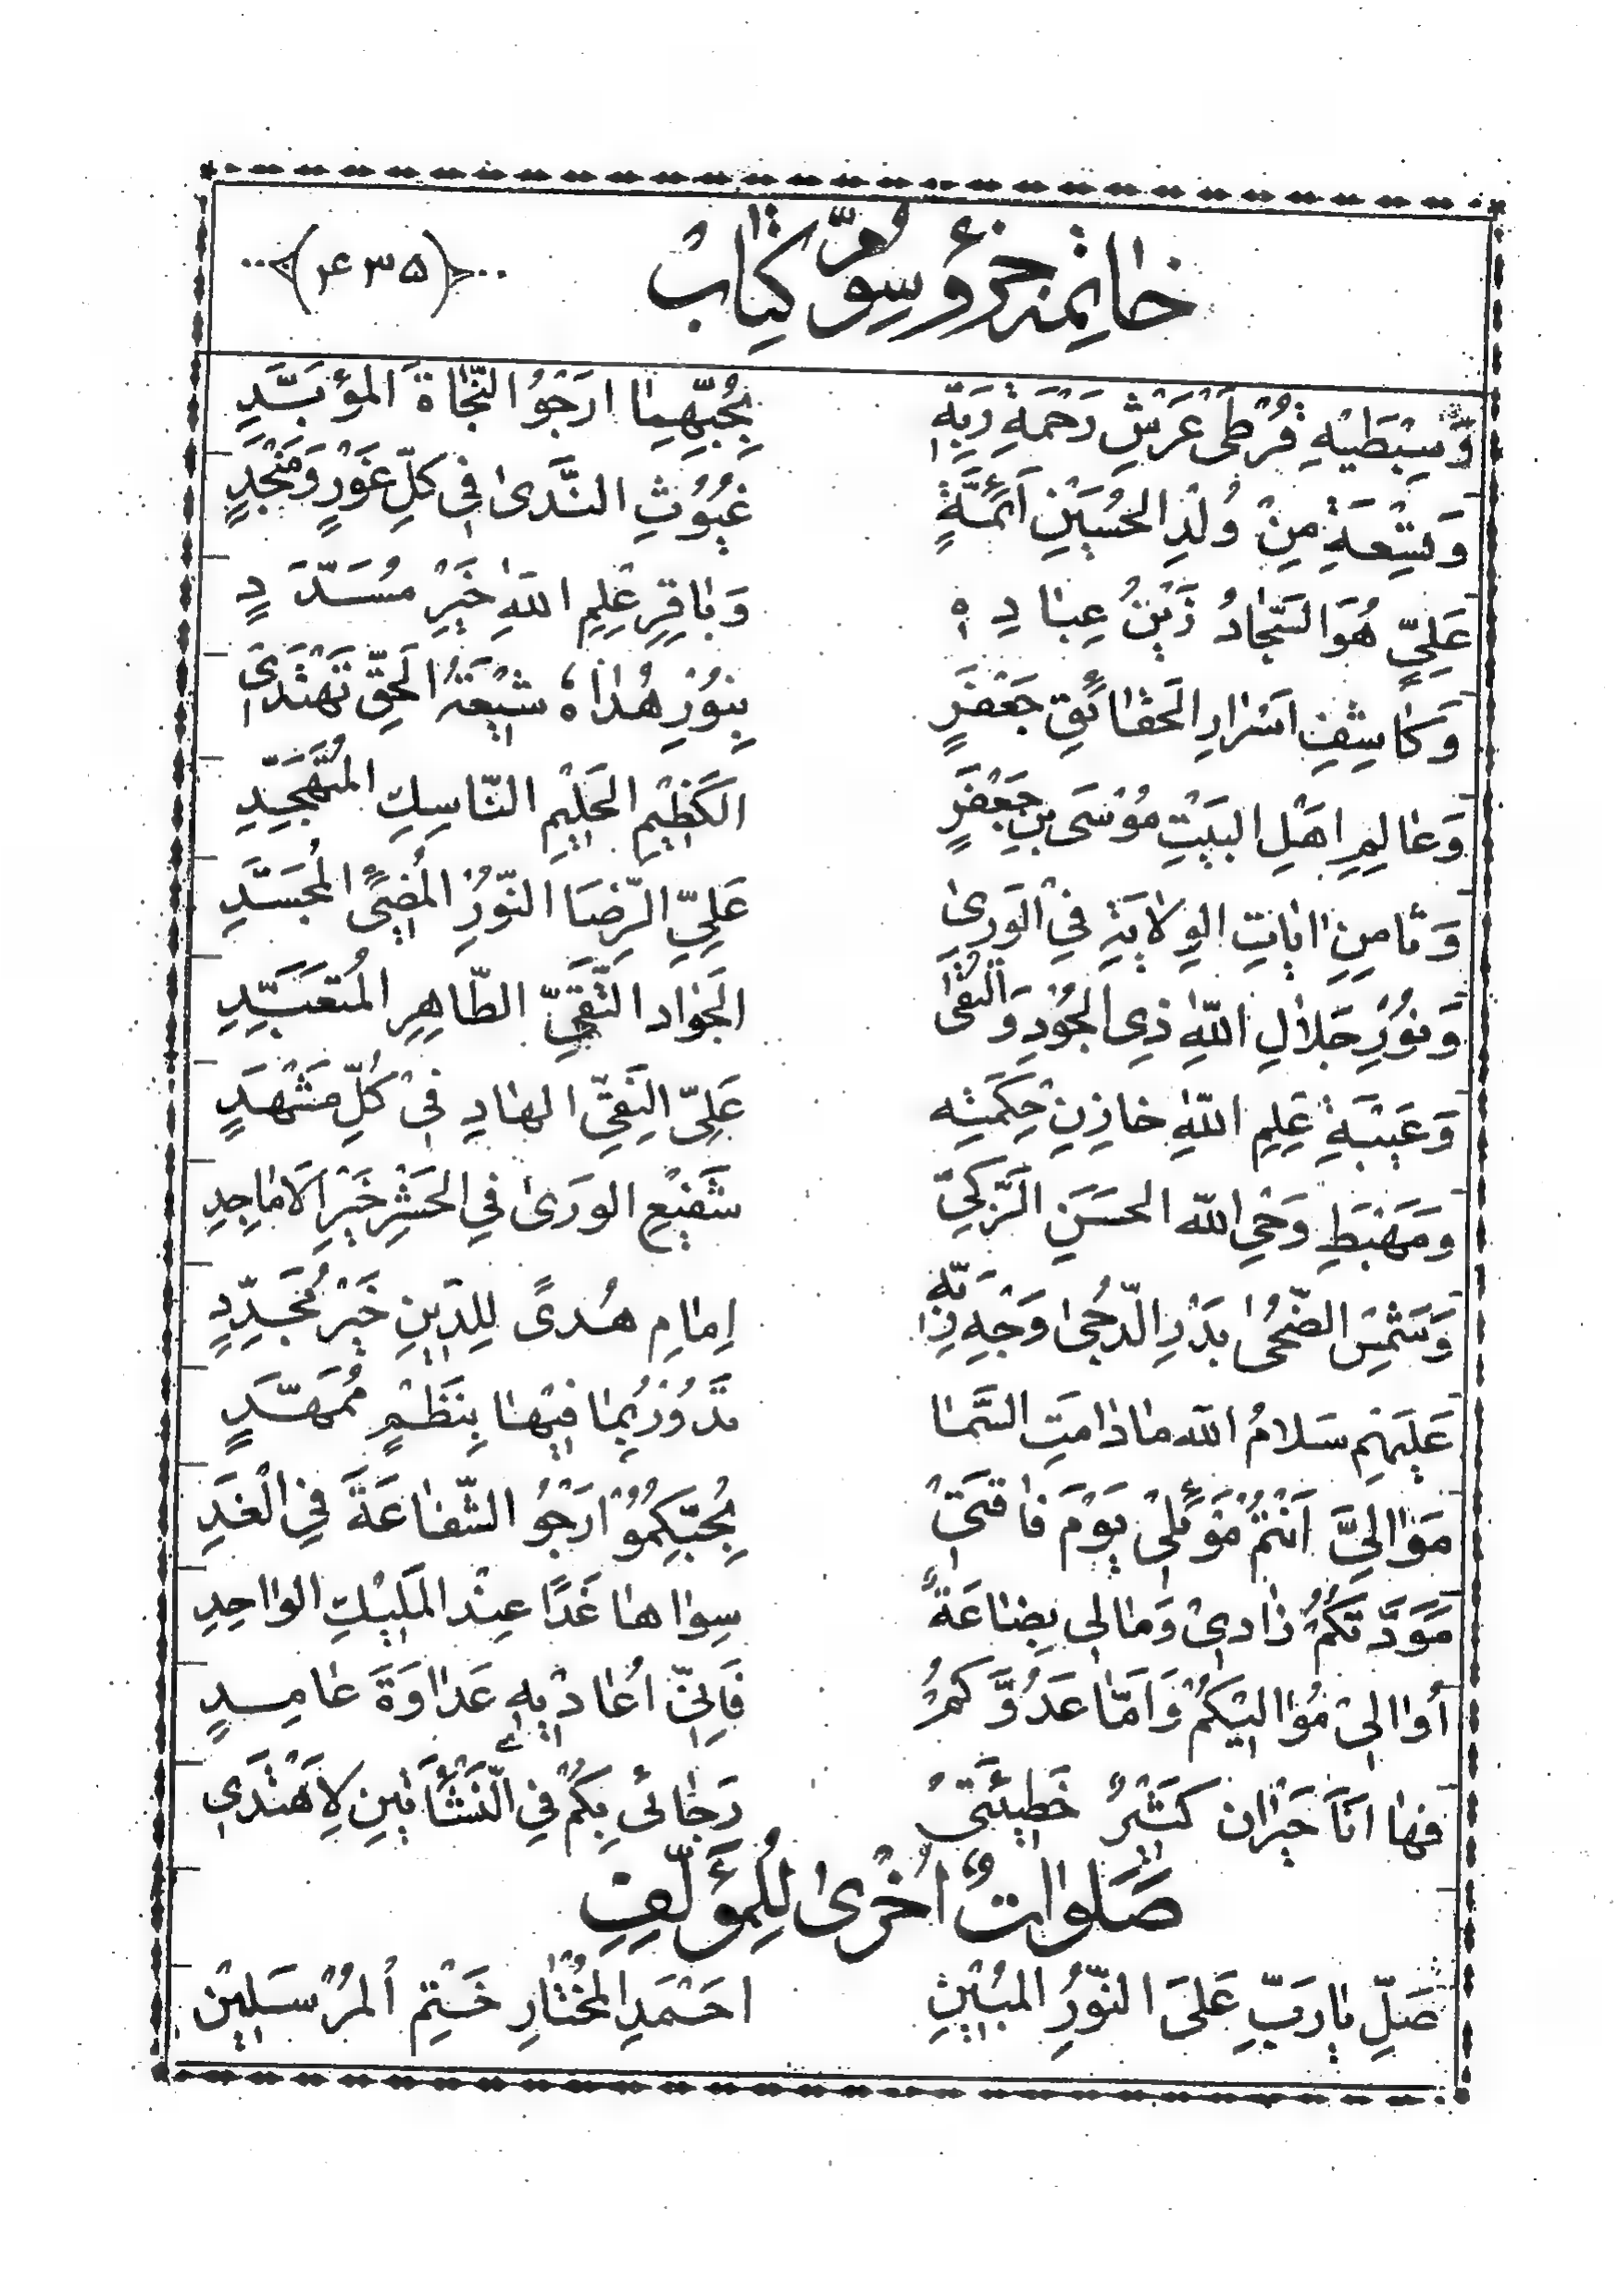 خاتمهٔ جزؤ سوّم کتاب ﴿۴۳۵﴾
وَسِبْطَيْهِ قُرْطَىْ عَرْشِ رَحْمَةِ رَبِّهِ بِحُبِّهِمٰا ارَجْوُ النَّجٰاةَ المُؤَبَّدِ
وَتِسْعَةِ مِنْ وُلْدِ الحُسَيْنِ اَئِمَّةٍ غُيُوُثِ النَّدىٰ فى كلِّ غَوْرٍ وَمَنْجَدٍ
عَلِىٍّ هُوَ السَّجّٰادُ زَيْنُ عِبٰادِهِ وَبٰاقِرِ عِلِمِ اللهِ خَيْرِ مُسَدَّدٍ
وَكٰاشِفِ اسَرْارِ الحَقٰائِقِ جَعْفَرٍ بِنوُرِ هُدٰاهُ شيْعَةُ الحَقِّ تَهْتَدى
وَعٰالِمِ اهَلِ البَيْتِ مُوْسَى بنِ جَعْفَرٍ الكَظْيِمِ الحَليْمِ النّاسِكِ المُتَهَجِّدِ
وَثٰامِنِ اٰيٰاتِ الوِلاٰيَةِ فِي الوَرىٰ عَلِىِّ الرِّضَا النّوُرِ المُضىِءِ المُجَسَّدِ
وَنوُرِ جَلاٰلِ اللهِ ذِى الجُوُدِ وَالتُقىٰ الجَوٰاد التَّقىِّ الطّاهِرِ المُتعَبِّدِ
وَعَيْبَةِ عِلِمِ اللهِ خٰازِنِ حِكمَتِه عَلِىِّ النَقىِّ الهٰادِ فىْ كُلِّ مَشْهَدٍ
وَمَهْبَطِ وَحْىِ الله الحَسَنِ الزَّكىِّ شَفيْعِ الورَىٰ فِي الحَشْرِ خَيْرِ الاَمٰاجِدِ
وَشَمْسِ الضُّحىٰ بَدْرِ الدُّجىٰ وَجْهِ رَبِّهِ اِمٰامِ هُدىً لِلدّينِ خَيْرِ مُجَدِّدٍ
عَلَيْهِم سَلامُ الله مٰا دٰامَتِ السَّمٰا تَدوُرُ بِمٰا فيْهٰا بِنَظْمٍ مُمَهَّدٍ
مَوٰالِىَّ اَنْتُمْ مَوْئِلىْ يَوْمَ فٰاقَتىْ بِحُبِّكِمُوُ ارَجْوُ الشَّفٰاعَةَ فِي الْغَدِ
مَوَدَّتَكُمُ زٰادىْ وَمٰالى بِضٰاعَةً سِوٰاهٰا غَدًا عِنْد المَليْكِ الوٰاحِدِ
اُوٰالىْ مُوٰاليْكُمْ وَاَمّٰا عَدُوَّكمُ فَاِنّى اُعٰاديْهِ عَدٰاوَةَ عٰامِدٍ
فهٰا انَاَ حَيْرٰان كَثيْرٌ خَطيئَتىْ رَجٰائى بِكُمْ فِي النَّشْأَتيِنِ لاِهَتْدَى
صَلَوٰاتٌ اُخْرىٰ لِلْمُؤَلِّفِ
صَلِّ يٰارَبِّ عَلىَ النّوُرِ المبُيْنِ احَمَدِ المخُتٰارِ خَتِمِ المرُسَليْن